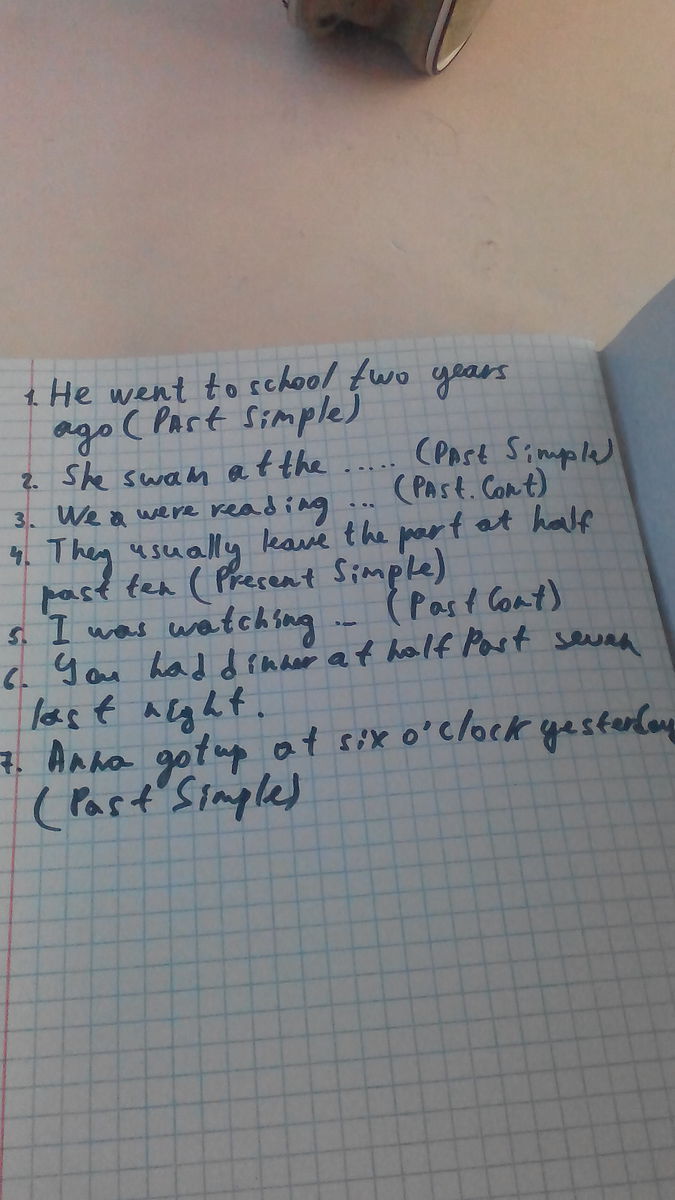 1. He went to school two years
ago (Past Simple)
2. She swam at the ..... (Past Simple)
3. We a were reading ... (Past. Cont)
4. They usually leave the part at half
past ten (Present Simple)
5. I was watching ... (Past Cont)
6. You had dinner at half Past seven
last night.
7. Anna got up at six o'clock yesterday
(Past Simple)